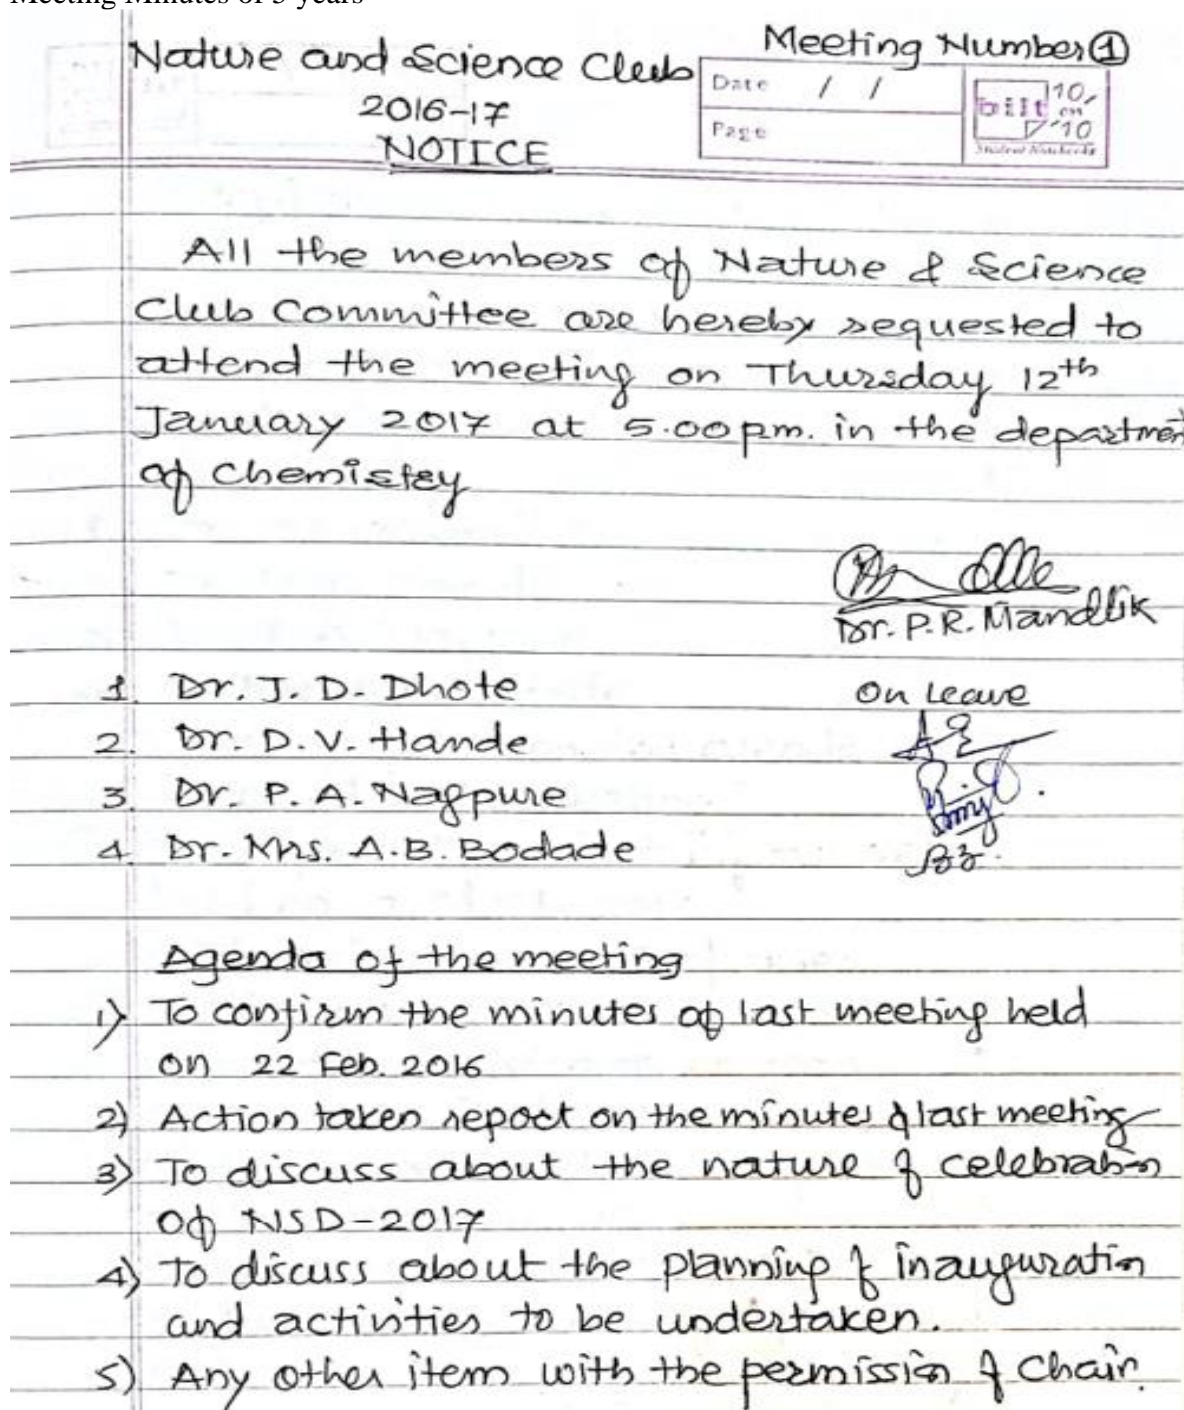 Meeting Minutes of 5 years
Meeting Number ①
Nature and Science Club
2016-17
NOTICE
Date / /
Page
bilt 10 on 10
Student Notebooks
All the members of Nature & Science
Club Committee are hereby requested to
attend the meeting on Thursday 12th
January 2017 at 5.00pm. in the department
of Chemistry
Dr. P.R. Mandlik
1. Dr. J. D. Dhote On Leave
2. Dr. D. V. Hande
3. Dr. P. A. Nagpure
4. Dr. Mrs. A.B. Bodade
Agenda of the meeting
1) To confirm the minutes of last meeting held
on 22 Feb. 2016
2) Action taken report on the minutes of last meeting
3) To discuss about the nature of celebration
of NSD-2017
4) To discuss about the planning of inauguration
and activities to be undertaken.
5) Any other item with the permission of Chair.